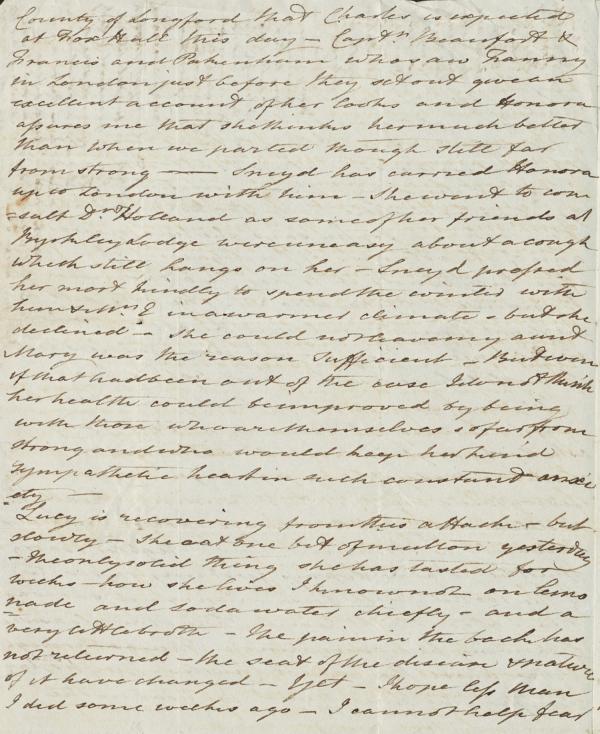 County of Longford that Charles is expected
at Fox Hall this day – Captn Beaufort &
Francis and Pakenham who saw Fanny
in London just before they set out gave an
excellent account of her looks and Honora
assures me that she thinks her much better
than when we parted though still far
from strong — Sneyd has carried Honora
up to London with him – She went to con
=sult Dr Holland as some of her friends at
Byrkley Lodge were uneasy about a cough
which still hangs on her – Sneyd pressed
her most kindly to spend the winter with
him & Mrs E in a warmer climate – but she
declined – She could not leave my aunt
Mary was the reason sufficient – But even
if that had been out of the case I do not think
her health could be improved by being
with those who are themselves so far from
strong and who would keep her kind
sympathetic heart in such constant anxi
ety —
Lucy is recovering from this attack – but
slowly – She eat one bit of mutton yesterday
– The only solid thing she has tasted for
weeks – how she lives I know not on lemo
nade and soda water chiefly – and a
very little broth – The pain in the back has
not returned – the seat of the disease & nature
of it have changed – I yet – I hope less than
I did some weeks ago – I cannot help fear